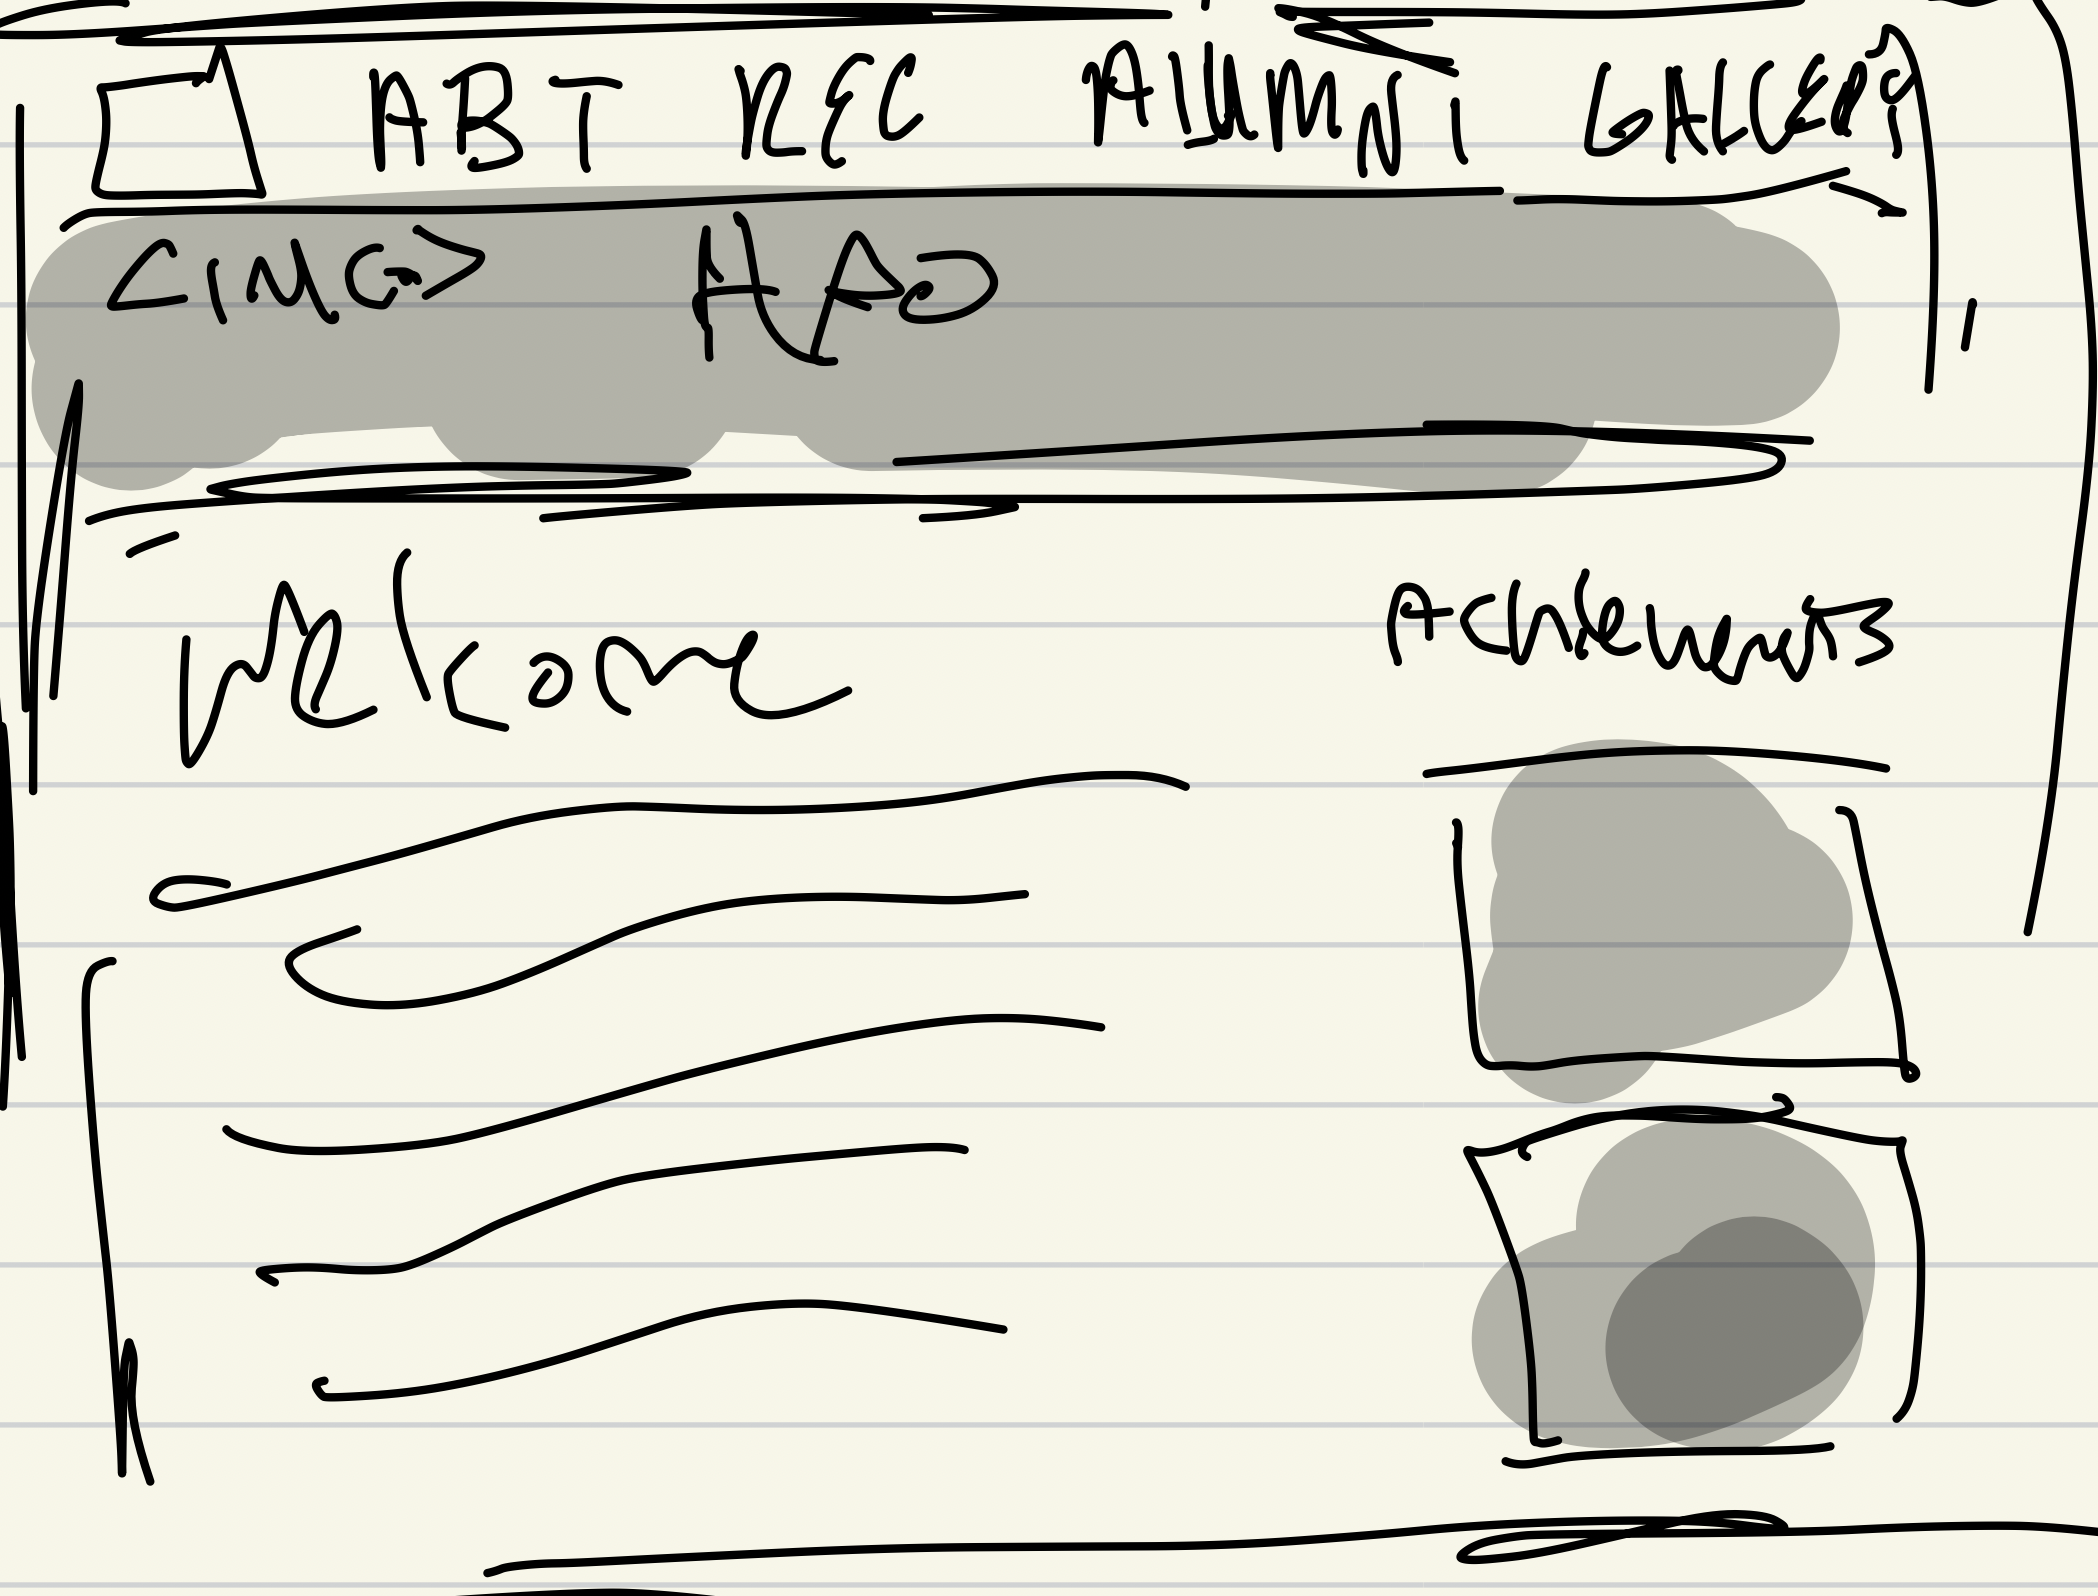 ABT REC AlUMNi GALLERY
<IMG> HAD
Welkome
Achievements